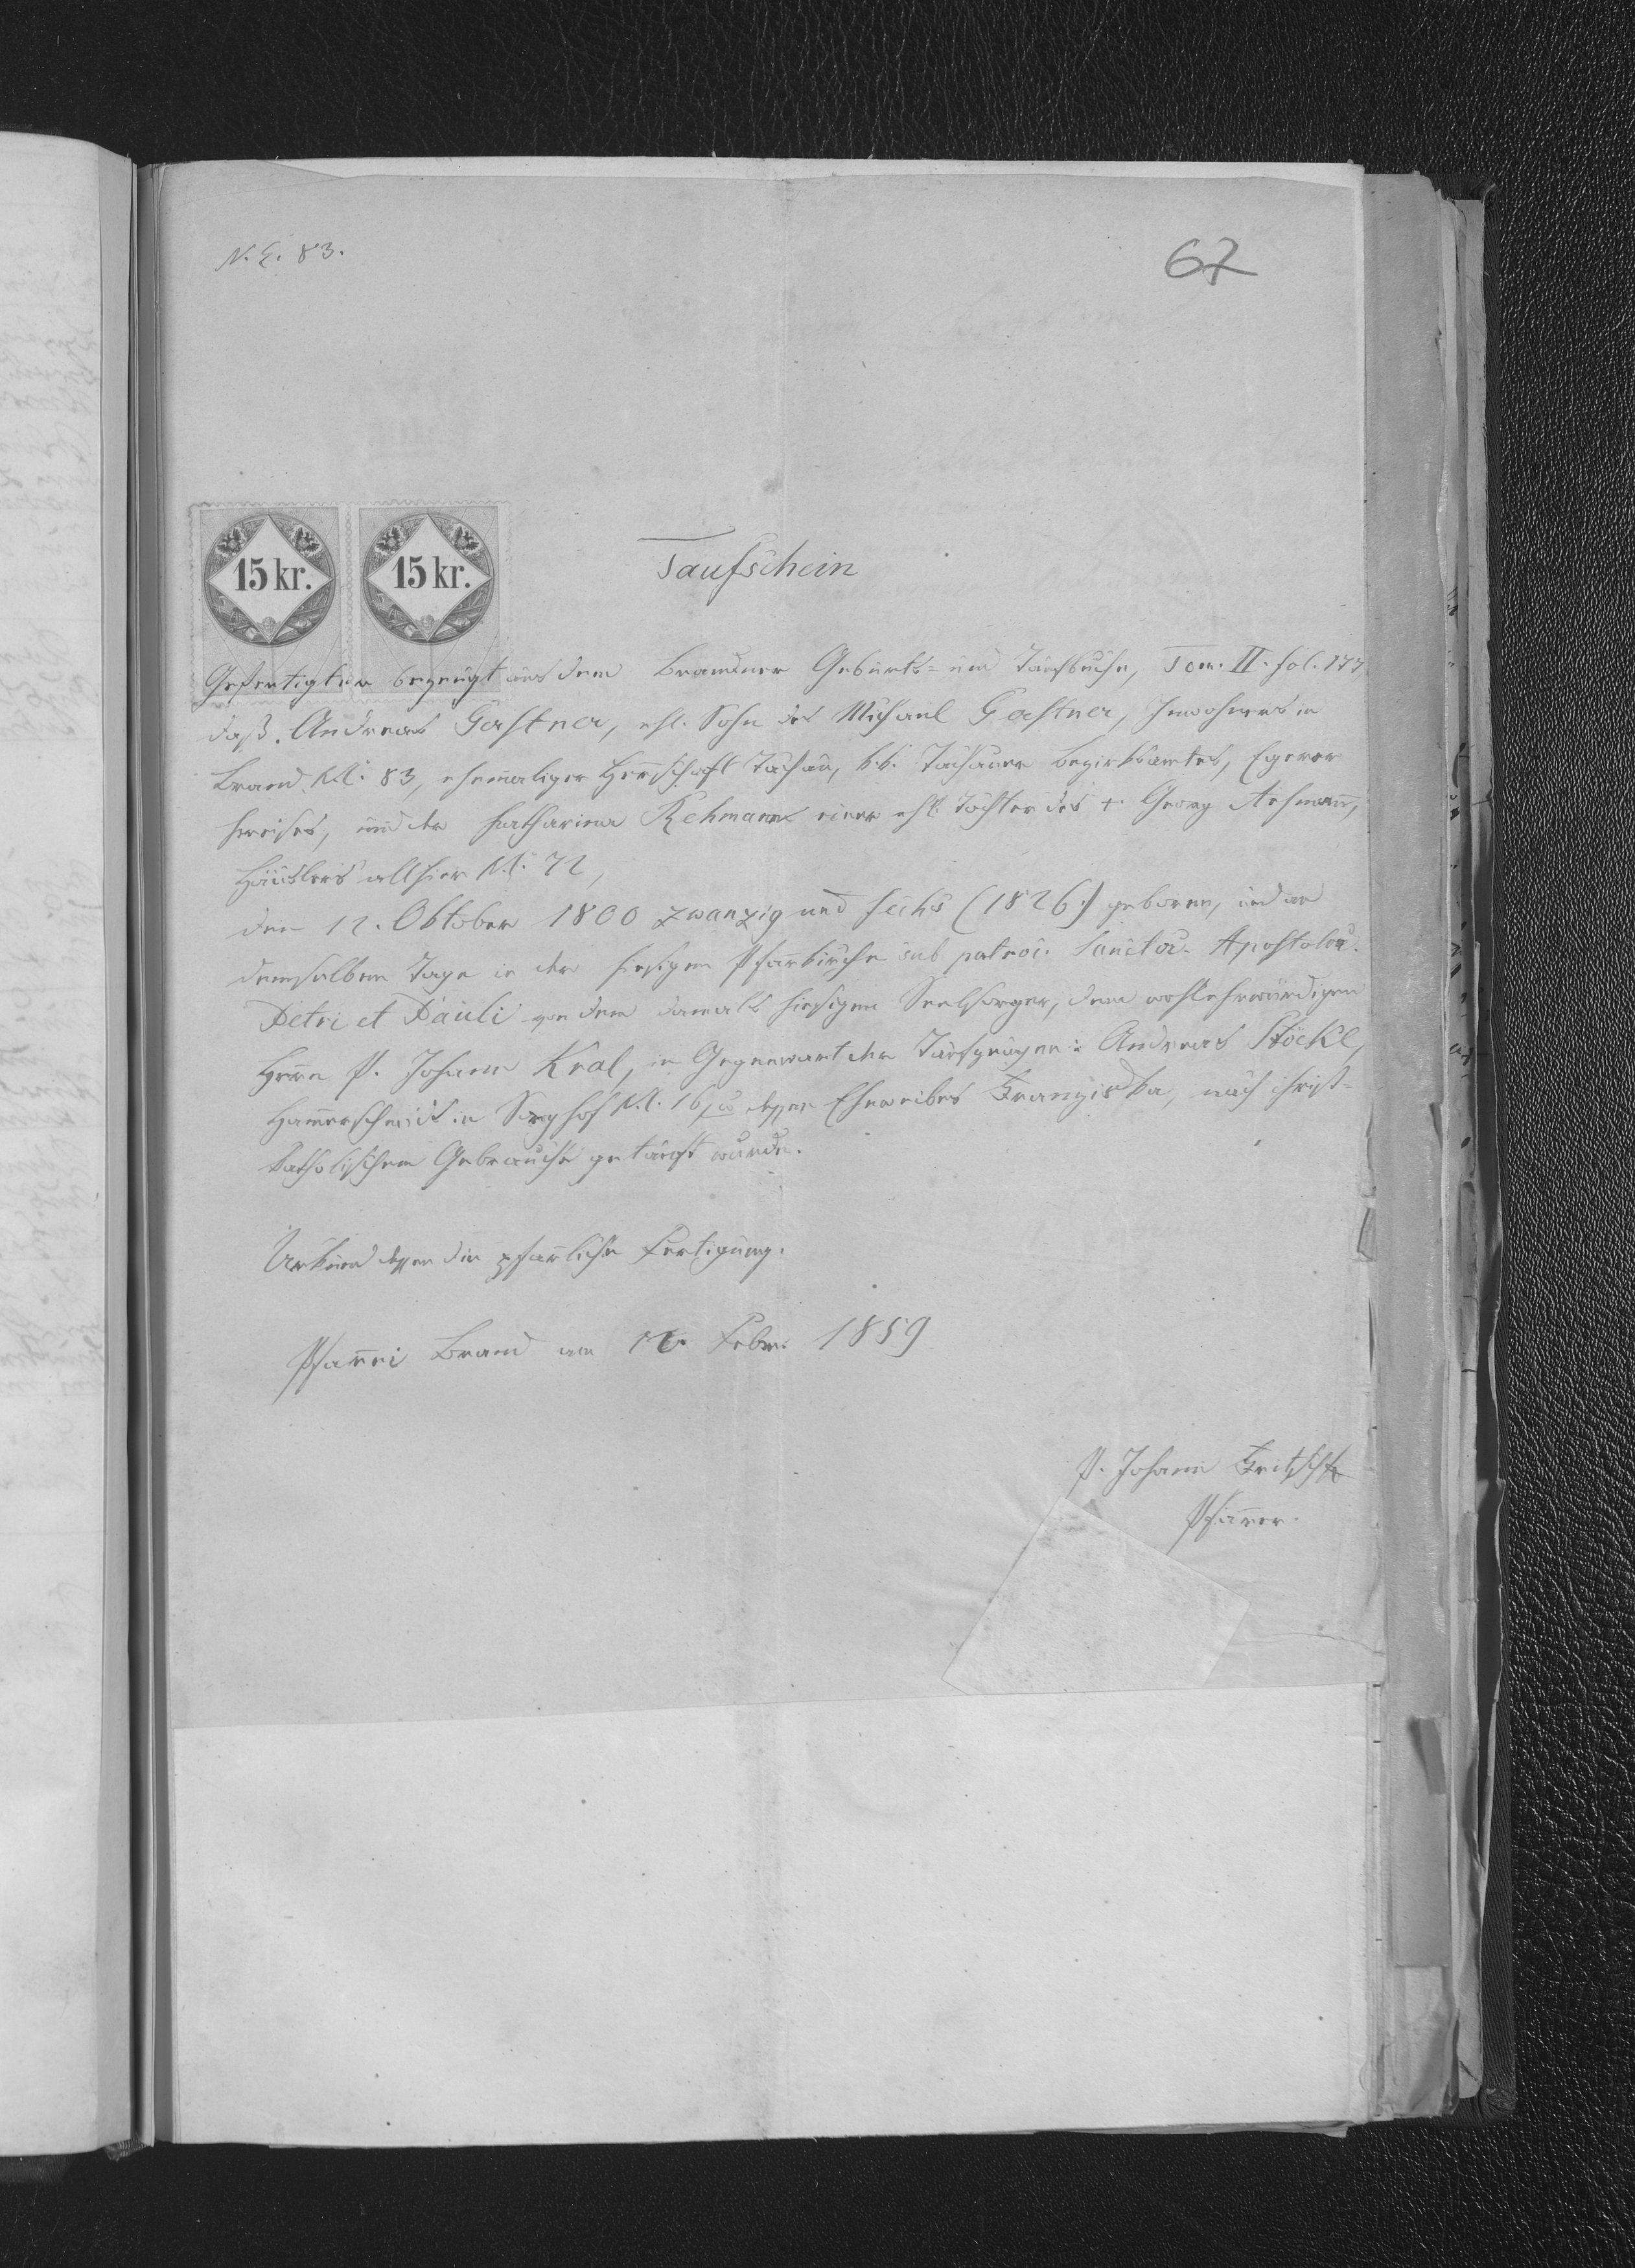 N. E. 83.
67
15 kr. 15 kr.
Taufschein
Gefertigter bezeugt aus dem Brandner Geburts= und Taufbuche, Tom. II. fol. 177
daß Andreas Gastner, ehl. Sohn des Michael Gastner, Inwohners in
Brand N. 83, ehemaliger Herrschaft Tachau, k.k. Tachauer Bezirksamtes, Egerer
Kreises, und der Katharina Rehmann einer ehl. Tochter des + Georg Rehmann,
Häuslers allhier N. 72,
den 12. Oktober 1800 zwanzig und sechs (1826) geboren, und an
demselben Tage in der hiesigen Pfarrkirche sub patroc. Sanctor. Apostolor.
Petri et Pauli von dem damals hiesigen Seelsorger, dem wohlehrwürdigen
Herrn P. Johann Kral, in Gegenwart der Taufzeugen: Andreas Stöckl,
Hammerschmid in Sorghof N. 16, u dessen Eheweibes Franziska, nach christ=
katholischem Gebrauche getauft wurde.
Urkund dessen die pfarrliche Fertigung.
Pfarrei Brand am Febr. 1859
P. Johann Fritsch
Pfarrer.